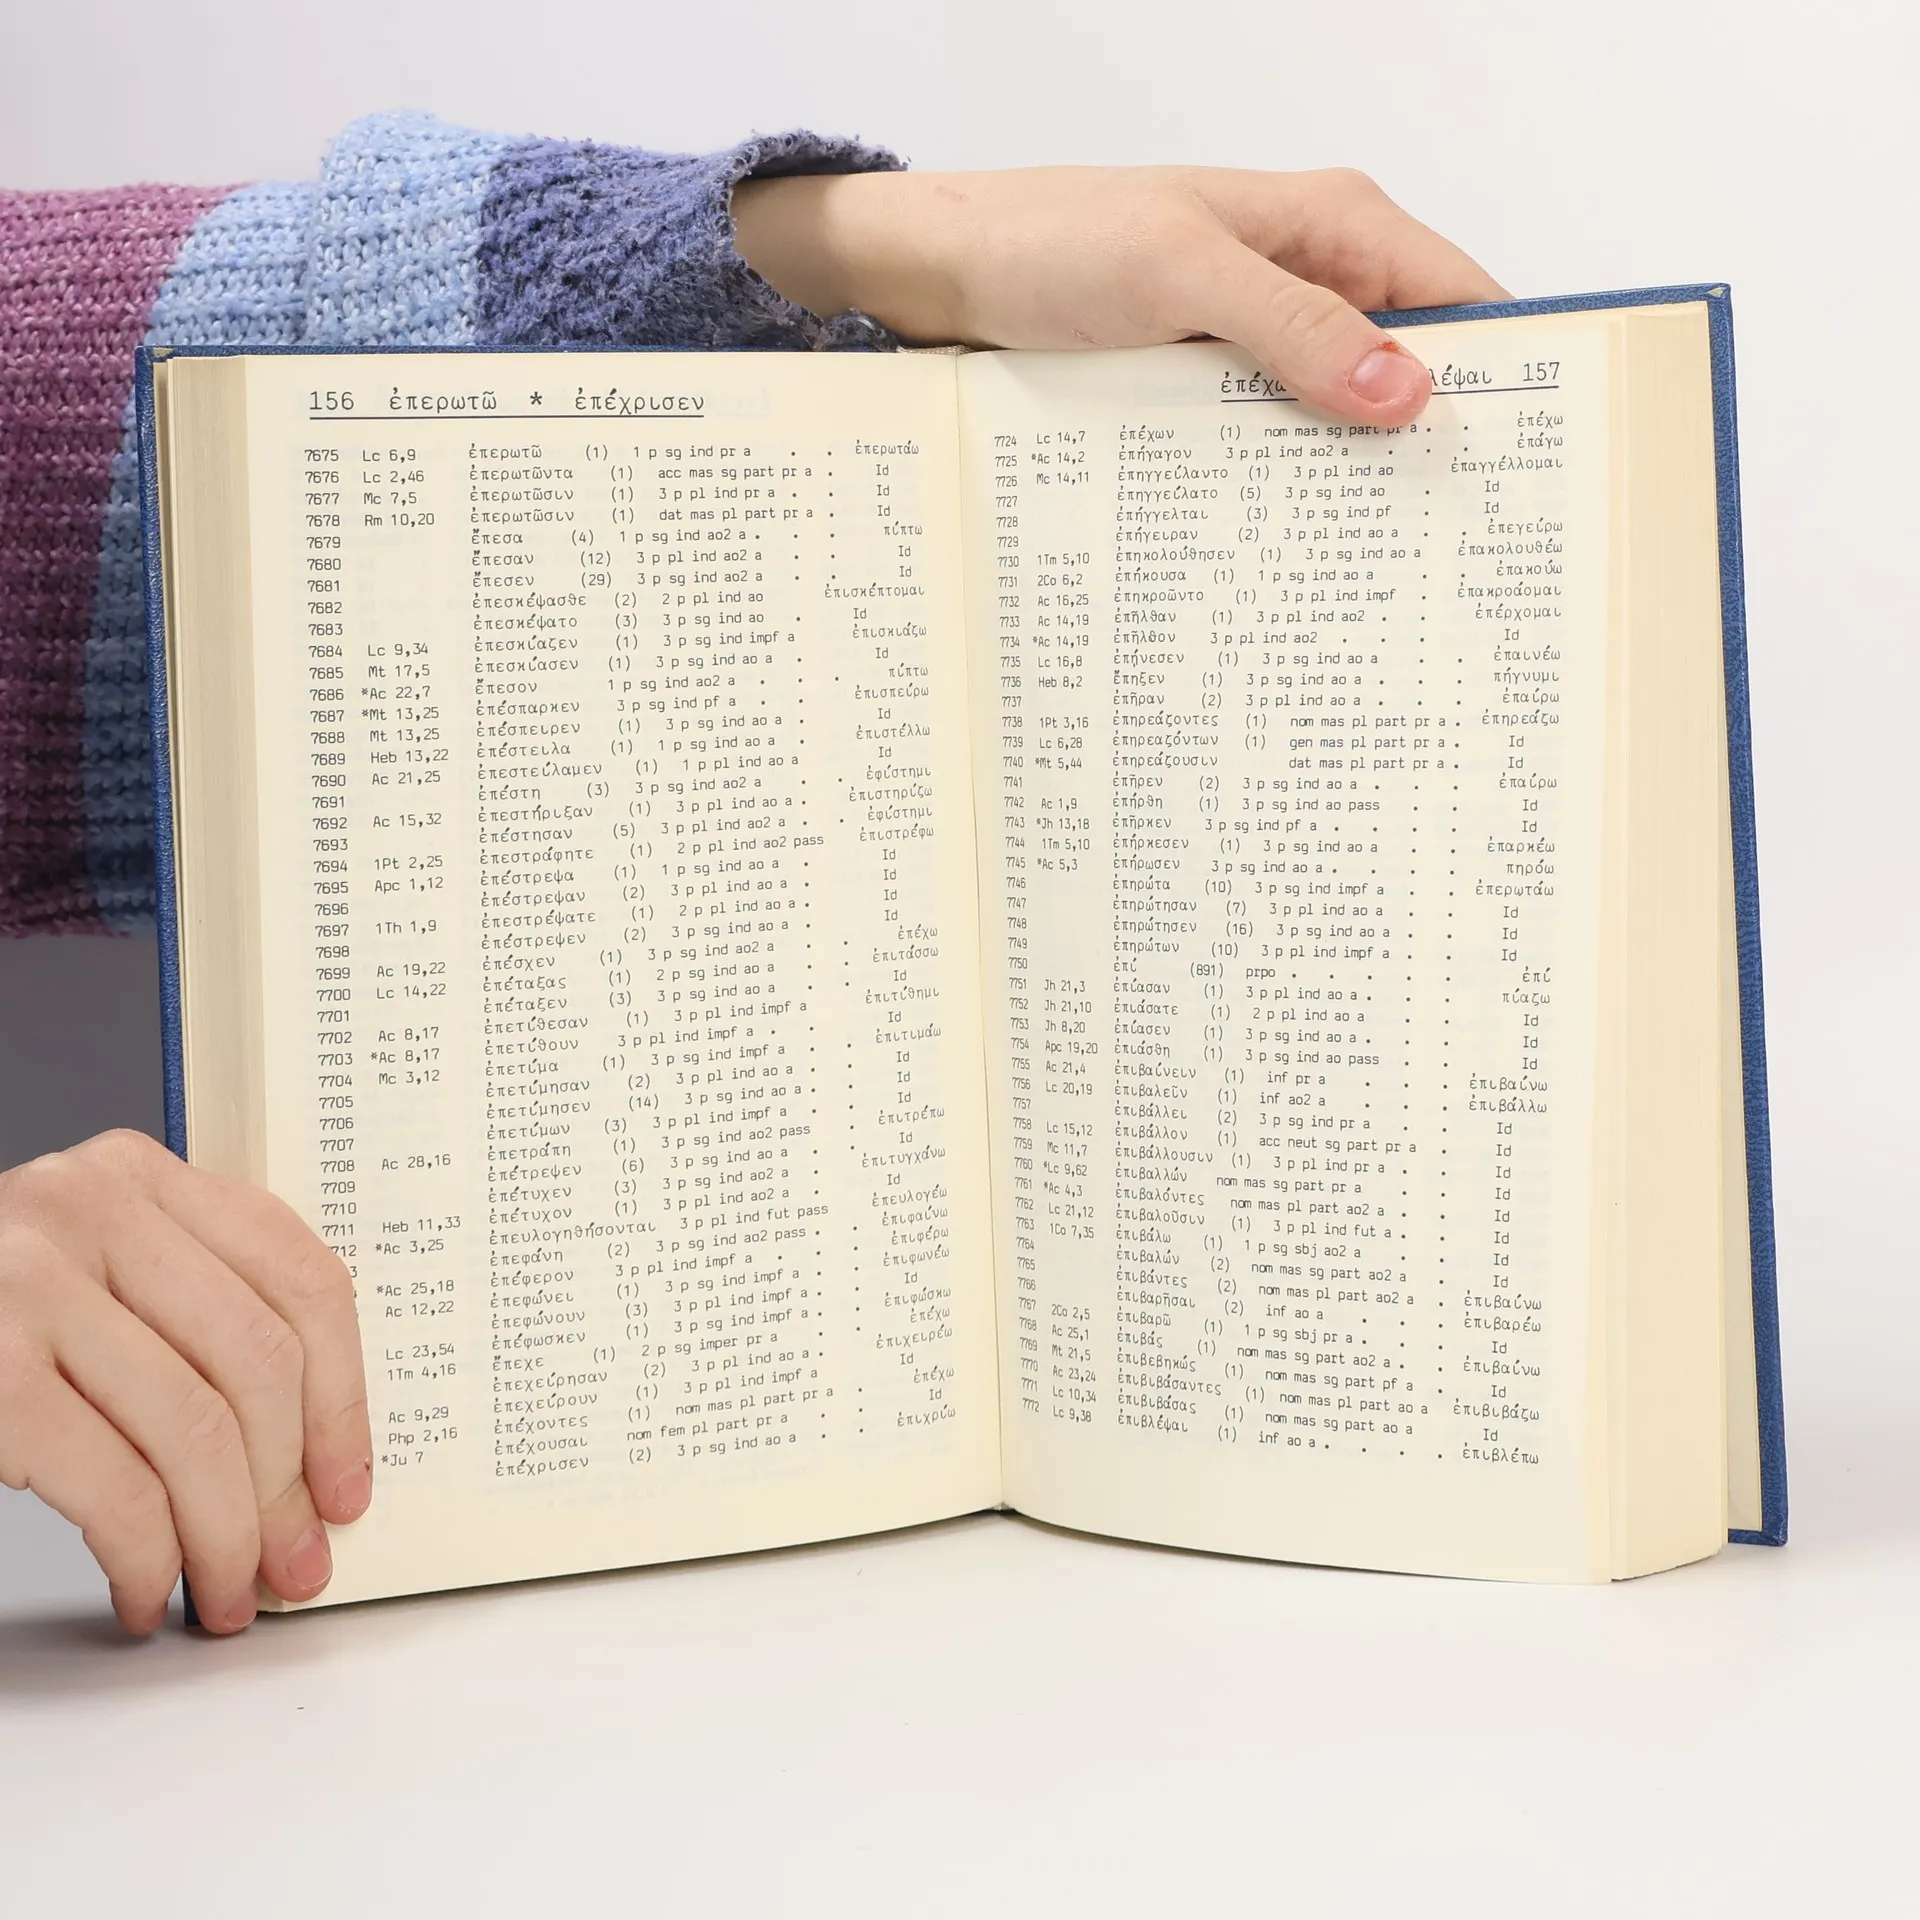 156 ἐπερωτῶ * ἐπέχρισεν
7675 Lc 6,9 ἐπερωτῶ (1) 1 p sg ind pr a . . ἐπερωτάω
7676 Lc 2,46 ἐπερωτῶντα (1) acc mas sg part pr a . Id
7677 Mc 7,5 ἐπερωτῶσιν (1) 3 p pl ind pr a . . Id
7678 Rm 10,20 ἐπερωτῶσιν (1) dat mas pl part pr a . Id
7679 ἔπεσα (4) 1 p sg ind ao2 a . . . πίπτω
7680 ἔπεσαν (12) 3 p pl ind ao2 a . . Id
7681 ἔπεσεν (29) 3 p sg ind ao2 a . . Id
7682 ἐπεσκέψασθε (2) 2 p pl ind ao ἐπισκέπτομαι
7683 ἐπεσκέψατο (3) 3 p sg ind ao . Id
7684 Lc 9,34 ἐπεσκίαζεν (1) 3 p sg ind impf a ἐπισκιάζω
7685 Mt 17,5 ἐπεσκίασεν (1) 3 p sg ind ao a . Id
7686 *Ac 22,7 ἔπεσον 1 p sg ind ao2 a . . . πίπτω
7687 *Mt 13,25 ἐπέσπαρκεν 3 p sg ind pf a . . ἐπισπείρω
7688 Mt 13,25 ἐπέσπειρεν (1) 3 p sg ind ao a . Id
7689 Heb 13,22 ἐπέστειλα (1) 1 p sg ind ao a . ἐπιστέλλω
7690 Ac 21,25 ἐπεστείλαμεν (1) 1 p pl ind ao a Id
7691 ἐπέστη (3) 3 p sg ind ao2 a . . ἐφίστημι
7692 Ac 15,32 ἐπεστήριξαν (1) 3 p pl ind ao a . ἐπιστηρίζω
7693 ἐπέστησαν (5) 3 p pl ind ao2 a . . ἐφίστημι
7694 1Pt 2,25 ἐπεστράφητε (1) 2 p pl ind ao2 pass ἐπιστρέφω
7695 Apc 1,12 ἐπέστρεψα (1) 1 p sg ind ao a . Id
7696 ἐπέστρεψαν (2) 3 p pl ind ao a . Id
7697 1Th 1,9 ἐπεστρέψατε (1) 2 p pl ind ao a . Id
7698 ἐπέστρεψεν (2) 3 p sg ind ao a . Id
7699 Ac 19,22 ἐπέσχεν (1) 3 p sg ind ao2 a . . ἐπέχω
7700 Lc 14,22 ἐπέταξας (1) 2 p sg ind ao a . . ἐπιτάσσω
7701 ἐπέταξεν (3) 3 p sg ind ao a . . Id
7702 Ac 8,17 ἐπετίθεσαν (1) 3 p pl ind impf a ἐπιτίθημι
7703 *Ac 8,17 ἐπετίθουν 3 p pl ind impf a . . Id
7704 Mc 3,12 ἐπετίμα (1) 3 p sg ind impf a . . ἐπιτιμάω
7705 ἐπετίμησαν (2) 3 p pl ind ao a . . Id
7706 ἐπετίμησεν (14) 3 p sg ind ao a . . Id
7707 ἐπετίμων (3) 3 p pl ind impf a . . Id
7708 Ac 28,16 ἐπετράπη (1) 3 p sg ind ao2 pass . ἐπιτρέπω
7709 ἐπέτρεψεν (6) 3 p sg ind ao a . . Id
7710 ἐπέτυχεν (3) 3 p sg ind ao2 a . ἐπιτυγχάνω
7711 Heb 11,33 ἐπέτυχον (1) 3 p pl ind ao2 a . Id
712 *Ac 3,25 ἐπευλογηθήσονται 3 p pl ind fut pass ἐπευλογέω
3 ἐπεφάνη (2) 3 p sg ind ao2 pass . . ἐπιφαίνω
*Ac 25,18 ἐπέφερον 3 p pl ind impf a . . ἐπιφέρω
Ac 12,22 ἐπεφώνει (1) 3 p sg ind impf a . . ἐπιφωνέω
ἐπεφώνουν (3) 3 p pl ind impf a . . Id
Lc 23,54 ἐπέφωσκεν (1) 3 p sg ind impf a . . ἐπιφώσκω
1Tm 4,16 ἔπεχε (1) 2 p sg imper pr a . . ἐπέχω
ἐπεχείρησαν (2) 3 p pl ind ao a . ἐπιχειρέω
Ac 9,29 ἐπεχείρουν (1) 3 p pl ind impf a Id
Php 2,16 ἐπέχοντες (1) nom mas pl part pr a . ἐπέχω
*Ju 7 ἐπέχουσαι nom fem pl part pr a . . Id
ἐπέχρισεν (2) 3 p sg ind ao a . . ἐπιχρίω
157
7724 Lc 14,7 ἐπέχων (1) nom mas sg part pr a . . ἐπέχω
7725 *Ac 14,2 ἐπήγαγον 3 p pl ind ao2 a . . . ἐπάγω
7726 Mc 14,11 ἐπηγγείλαντο (1) 3 p pl ind ao ἐπαγγέλλομαι
7727 ἐπηγγείλατο (5) 3 p sg ind ao . Id
7728 ἐπήγγελται (3) 3 p sg ind pf . Id
7729 ἐπήγειραν (2) 3 p pl ind ao a . . ἐπεγείρω
7730 1Tm 5,10 ἐπηκολούθησεν (1) 3 p sg ind ao a ἐπακολουθέω
7731 2Co 6,2 ἐπήκουσα (1) 1 p sg ind ao a . . ἐπακούω
7732 Ac 16,25 ἐπηκροῶντο (1) 3 p pl ind impf . ἐπακροάομαι
7733 Ac 14,19 ἐπῆλθαν (1) 3 p pl ind ao2 . . ἐπέρχομαι
7734 *Ac 14,19 ἐπῆλθον 3 p pl ind ao2 . . . Id
7735 Lc 16,8 ἐπῄνεσεν (1) 3 p sg ind ao a . . ἐπαινέω
7736 Heb 8,2 ἔπηξεν (1) 3 p sg ind ao a . . . πήγνυμι
7737 ἐπῆραν (2) 3 p pl ind ao a . . . ἐπαίρω
7738 1Pt 3,16 ἐπηρεάζοντες (1) nom mas pl part pr a . ἐπηρεάζω
7739 Lc 6,28 ἐπηρεαζόντων (1) gen mas pl part pr a . Id
7740 *Mt 5,44 ἐπηρεάζουσιν dat mas pl part pr a . Id
7741 ἐπῆρεν (2) 3 p sg ind ao a . . . ἐπαίρω
7742 Ac 1,9 ἐπήρθη (1) 3 p sg ind ao pass . . Id
7743 *Jh 13,18 ἐπῆρκεν 3 p sg ind pf a . . . . Id
7744 1Tm 5,10 ἐπήρκεσεν (1) 3 p sg ind ao a . . ἐπαρκέω
7745 *Ac 5,3 ἐπήρωσεν 3 p sg ind ao a . . . . πηρόω
7746 ἐπηρώτα (10) 3 p sg ind impf a . . ἐπερωτάω
7747 ἐπηρώτησαν (7) 3 p pl ind ao a . . Id
7748 ἐπηρώτησεν (16) 3 p sg ind ao a . . Id
7749 ἐπηρώτων (10) 3 p pl ind impf a . . Id
7750 ἐπί (891) prpo . . . . . ἐπί
7751 Jh 21,3 ἐπίασαν (1) 3 p pl ind ao a . . . πιάζω
7752 Jh 21,10 ἐπιάσατε (1) 2 p pl ind ao a . . Id
7753 Jh 8,20 ἐπίασεν (1) 3 p sg ind ao a . . . Id
7754 Apc 19,20 ἐπιάσθη (1) 3 p sg ind ao pass . . Id
7755 Ac 21,4 ἐπιβαίνειν (1) inf pr a . . . ἐπιβαίνω
7756 Lc 20,19 ἐπιβαλεῖν (1) inf ao2 a . . . ἐπιβάλλω
7757 ἐπιβάλλει (2) 3 p sg ind pr a . . Id
7758 Lc 15,12 ἐπιβάλλον (1) acc neut sg part pr a . Id
7759 Mc 11,7 ἐπιβάλλουσιν (1) 3 p pl ind pr a . . Id
7760 *Lc 9,62 ἐπιβάλλων nom mas sg part pr a . . Id
7761 *Ac 4,3 ἐπιβαλόντες nom mas pl part ao2 a . . Id
7762 Lc 21,12 ἐπιβαλοῦσιν (1) 3 p pl ind fut a . . Id
7763 1Co 7,35 ἐπιβάλω (1) 1 p sg sbj ao2 a . . Id
7764 ἐπιβαλών (2) nom mas sg part ao2 a . Id
7765 ἐπιβάντες (2) nom mas pl part ao2 a . ἐπιβαίνω
7766 ἐπιβαρῆσαι (2) inf ao a . . . ἐπιβαρέω
7767 2Co 2,5 ἐπιβαρῶ (1) 1 p sg sbj pr a . . Id
7768 Ac 25,1 ἐπιβάς (1) nom mas sg part ao2 a . . ἐπιβαίνω
7769 Mt 21,5 ἐπιβεβηκώς (1) nom mas sg part pf a . Id
7770 Ac 23,24 ἐπιβιβάσαντες (1) nom mas pl part ao a ἐπιβιβάζω
7771 Lc 10,34 ἐπιβιβάσας (1) nom mas sg part ao a Id
7772 Lc 9,38 ἐπιβλέψαι (1) inf ao a . . . . ἐπιβλέπω